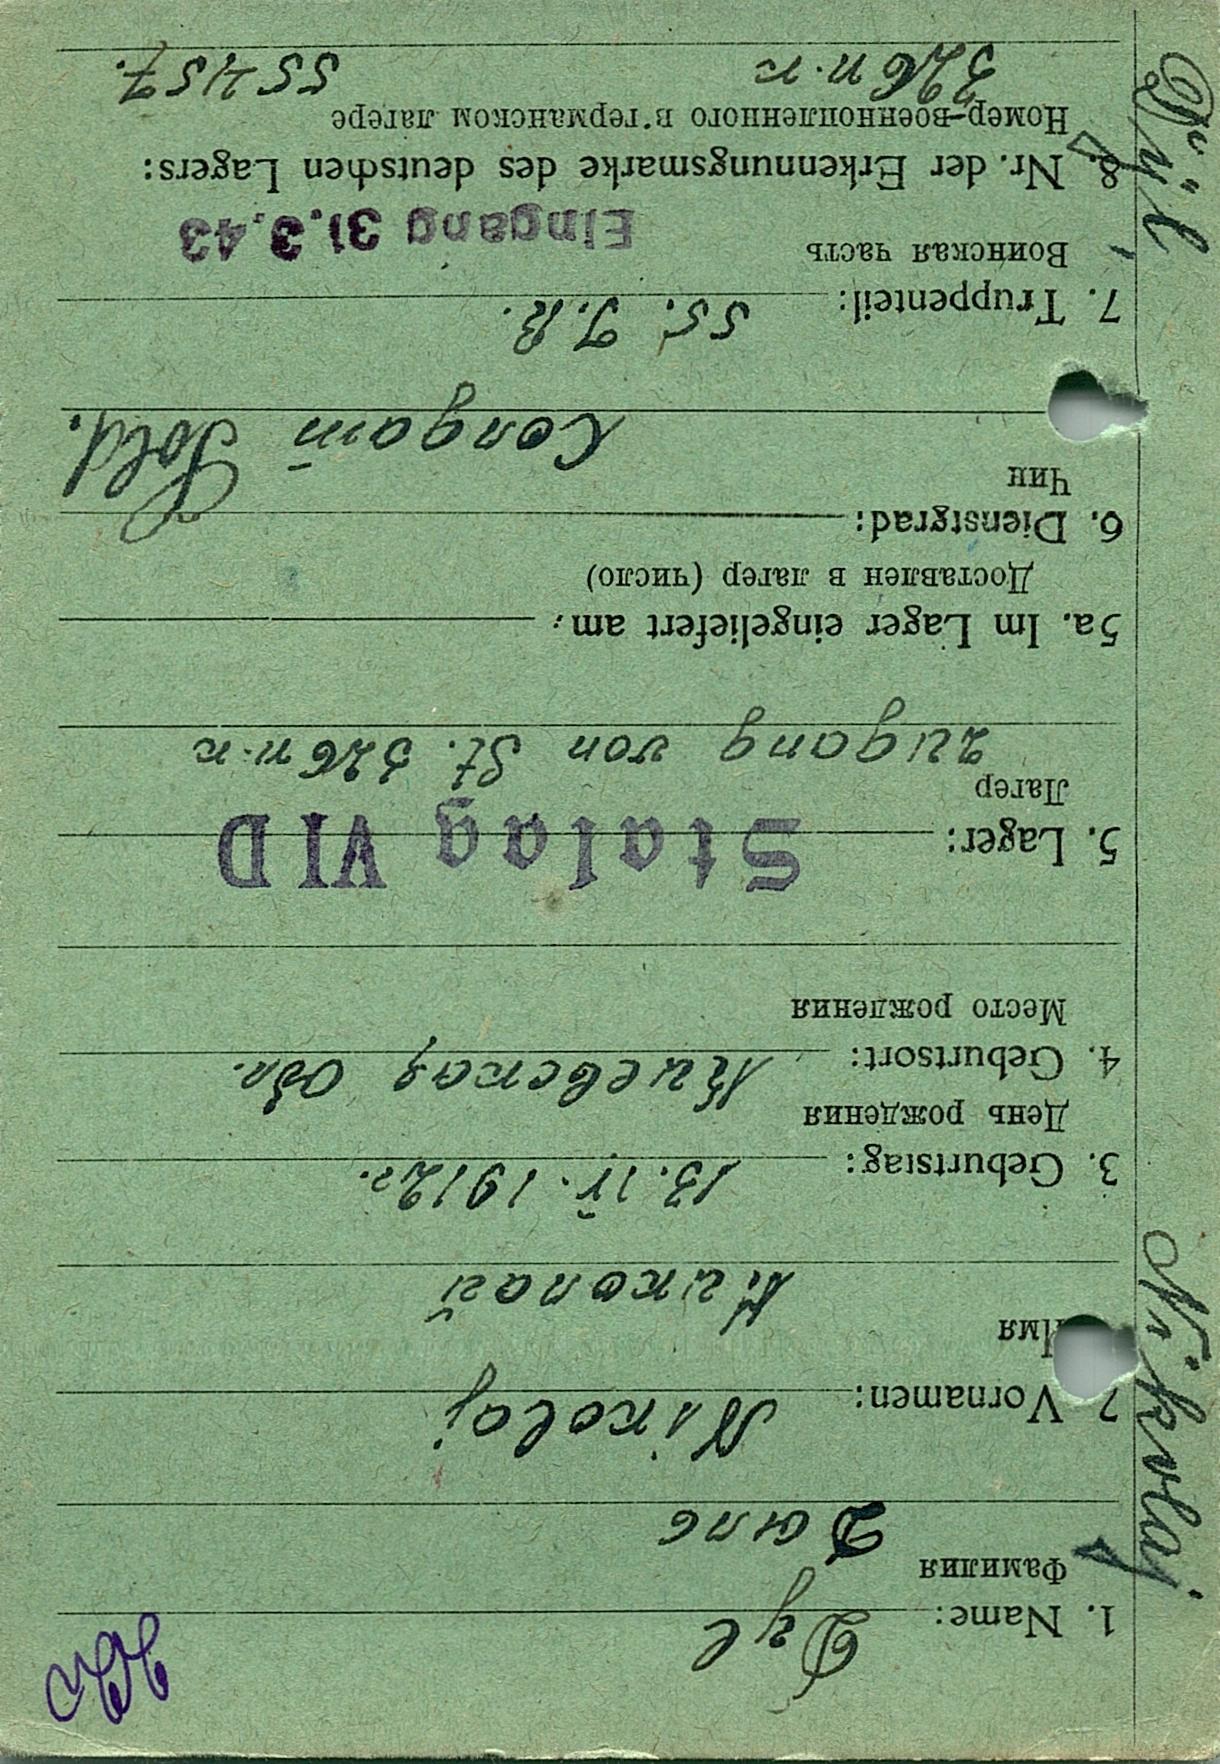 1. Name: Dyl
Фамилия
Дыль
2 Vornamen: Nikolaj
Имя
Николай
3. Geburtstag: 13. IV. 1912 г.
День рождения
4. Geburtsort: Киевская обл.
Место рождения
5. Lager: Stalag VI D
Лагер
zugang von St. 326 n.n
5a. Im Lager eingeliefert am:
Доставлен в лагер (число)
6. Dienstgrad: Sold.
Чин
Солдат
7. Truppenteil: 55.
Воинская часть
Eingang 31.3.43
8. Nr. der Erkennungsmarke des deutschen Lagers:
Номер военнопленного в германском лагере
326 n.n 55457.
Nikolaj